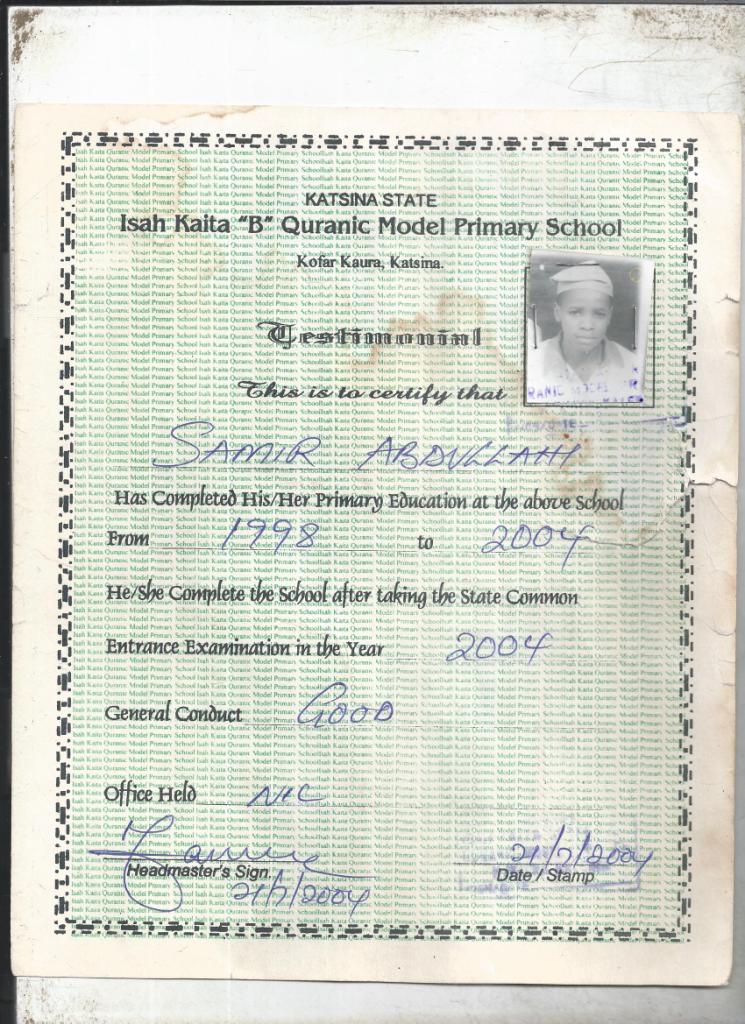 KATSINA STATE
Isah Kaita "B" Quranic Model Primary School
Kofar Kaura, Katsina.
Testimonial
This is to certify that
SAMIR ABDULLAHI
Has Completed His/Her Primary Education at the above School
From 1998 to 2004
He/She Complete the School after taking the State Common
Entrance Examination in the Year 2004
General Conduct GOOD
Office Held NIC
Headmaster's Sign.
21/7/2004
21/7/2004
Date / Stamp